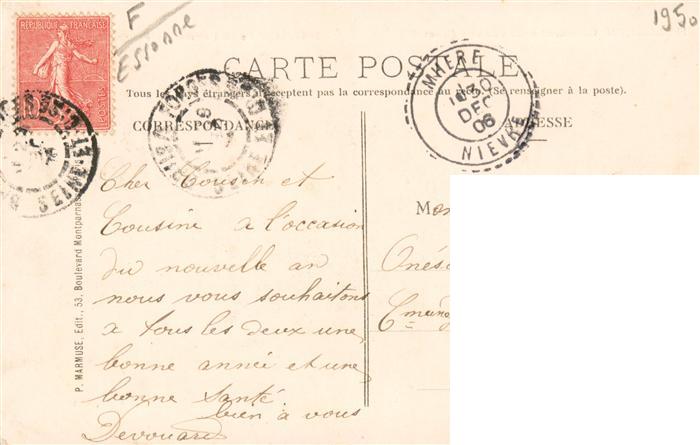 F
Essonne
1950
RÉPUBLIQUE FRANÇAISE
POSTES
CARTE POSTALE
Tous les pays étrangers n'acceptent pas la correspondance au recto. (Se renseigner à la poste).
CORRESPONDANCE
ADRESSE
IMPHY
DEC
06
NIEVRE
SEINE
P. MARMUSE, Edit., 53, Boulevard Montparnasse
Cher Cousin et
Cousine à l'occasion
du nouvelle an
nous vous souhaitons
a tous les deux une
bonne année et une
bonne santé.
bien à vous
Devouard